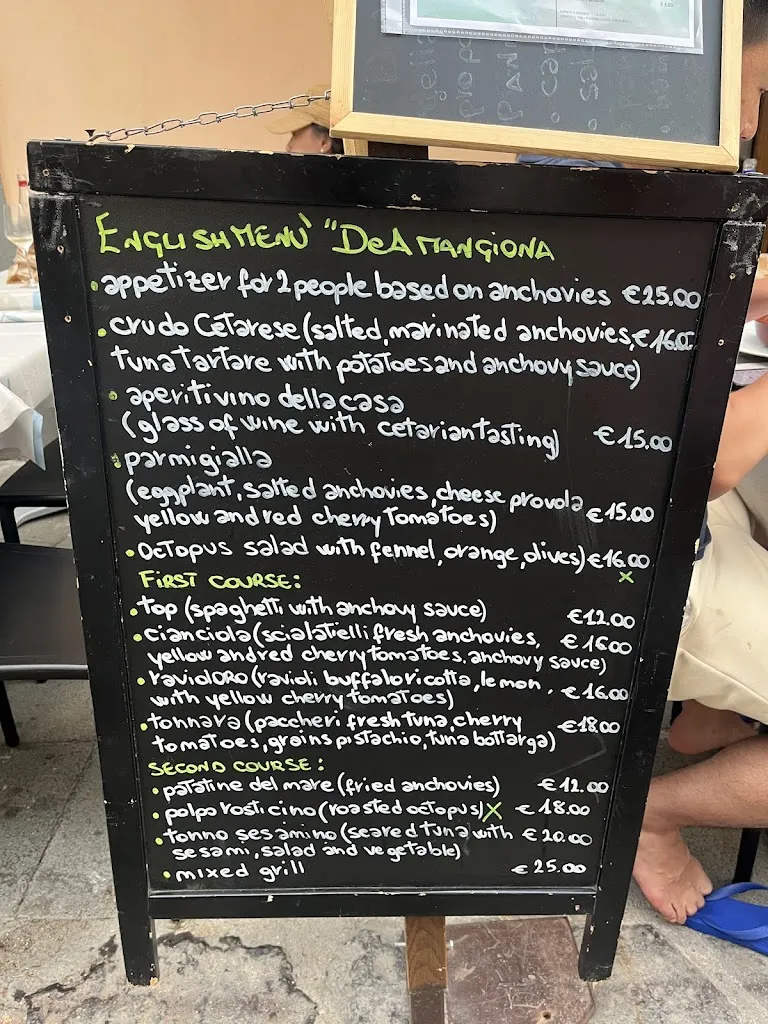 ENGLISH MENÙ "DEA MANGIONA
• appetizer for 2 people based on anchovies €25.00
• crudo Cetarese (salted, marinated anchovies, €16.0
tuna tartare with potatoes and anchovy sauce)
• aperitivino della casa
(glass of wine with cetarian tasting) €15.00
• parmigialla
(eggplant, salted anchovies, cheese provola
yellow and red cherry tomatoes) €15.00
• octopus salad with fennel, orange, olives) €16.00
x
FIRST COURSE:
• top (spaghetti with anchovy sauce) €12.00
• cianciola (scialatielli fresh anchovies, €16.00
yellow and red cherry tomatoes, anchovy sauce)
• raviolORO (ravioli buffalo ricotta, lemon,
with yellow cherry tomatoes) €16.00
• tonnara (paccheri fresh tuna, cherry €18.00
tomatoes, grains pistachio, tuna bottarga)
SECOND COURSE:
• patatine del mare (fried anchovies) €12.00
• polpo rosticino (roasted octopus) X €18.00
• tonno sesamino (seared tuna with €20.00
sesami, salad and vegetable)
• mixed grill €25.00